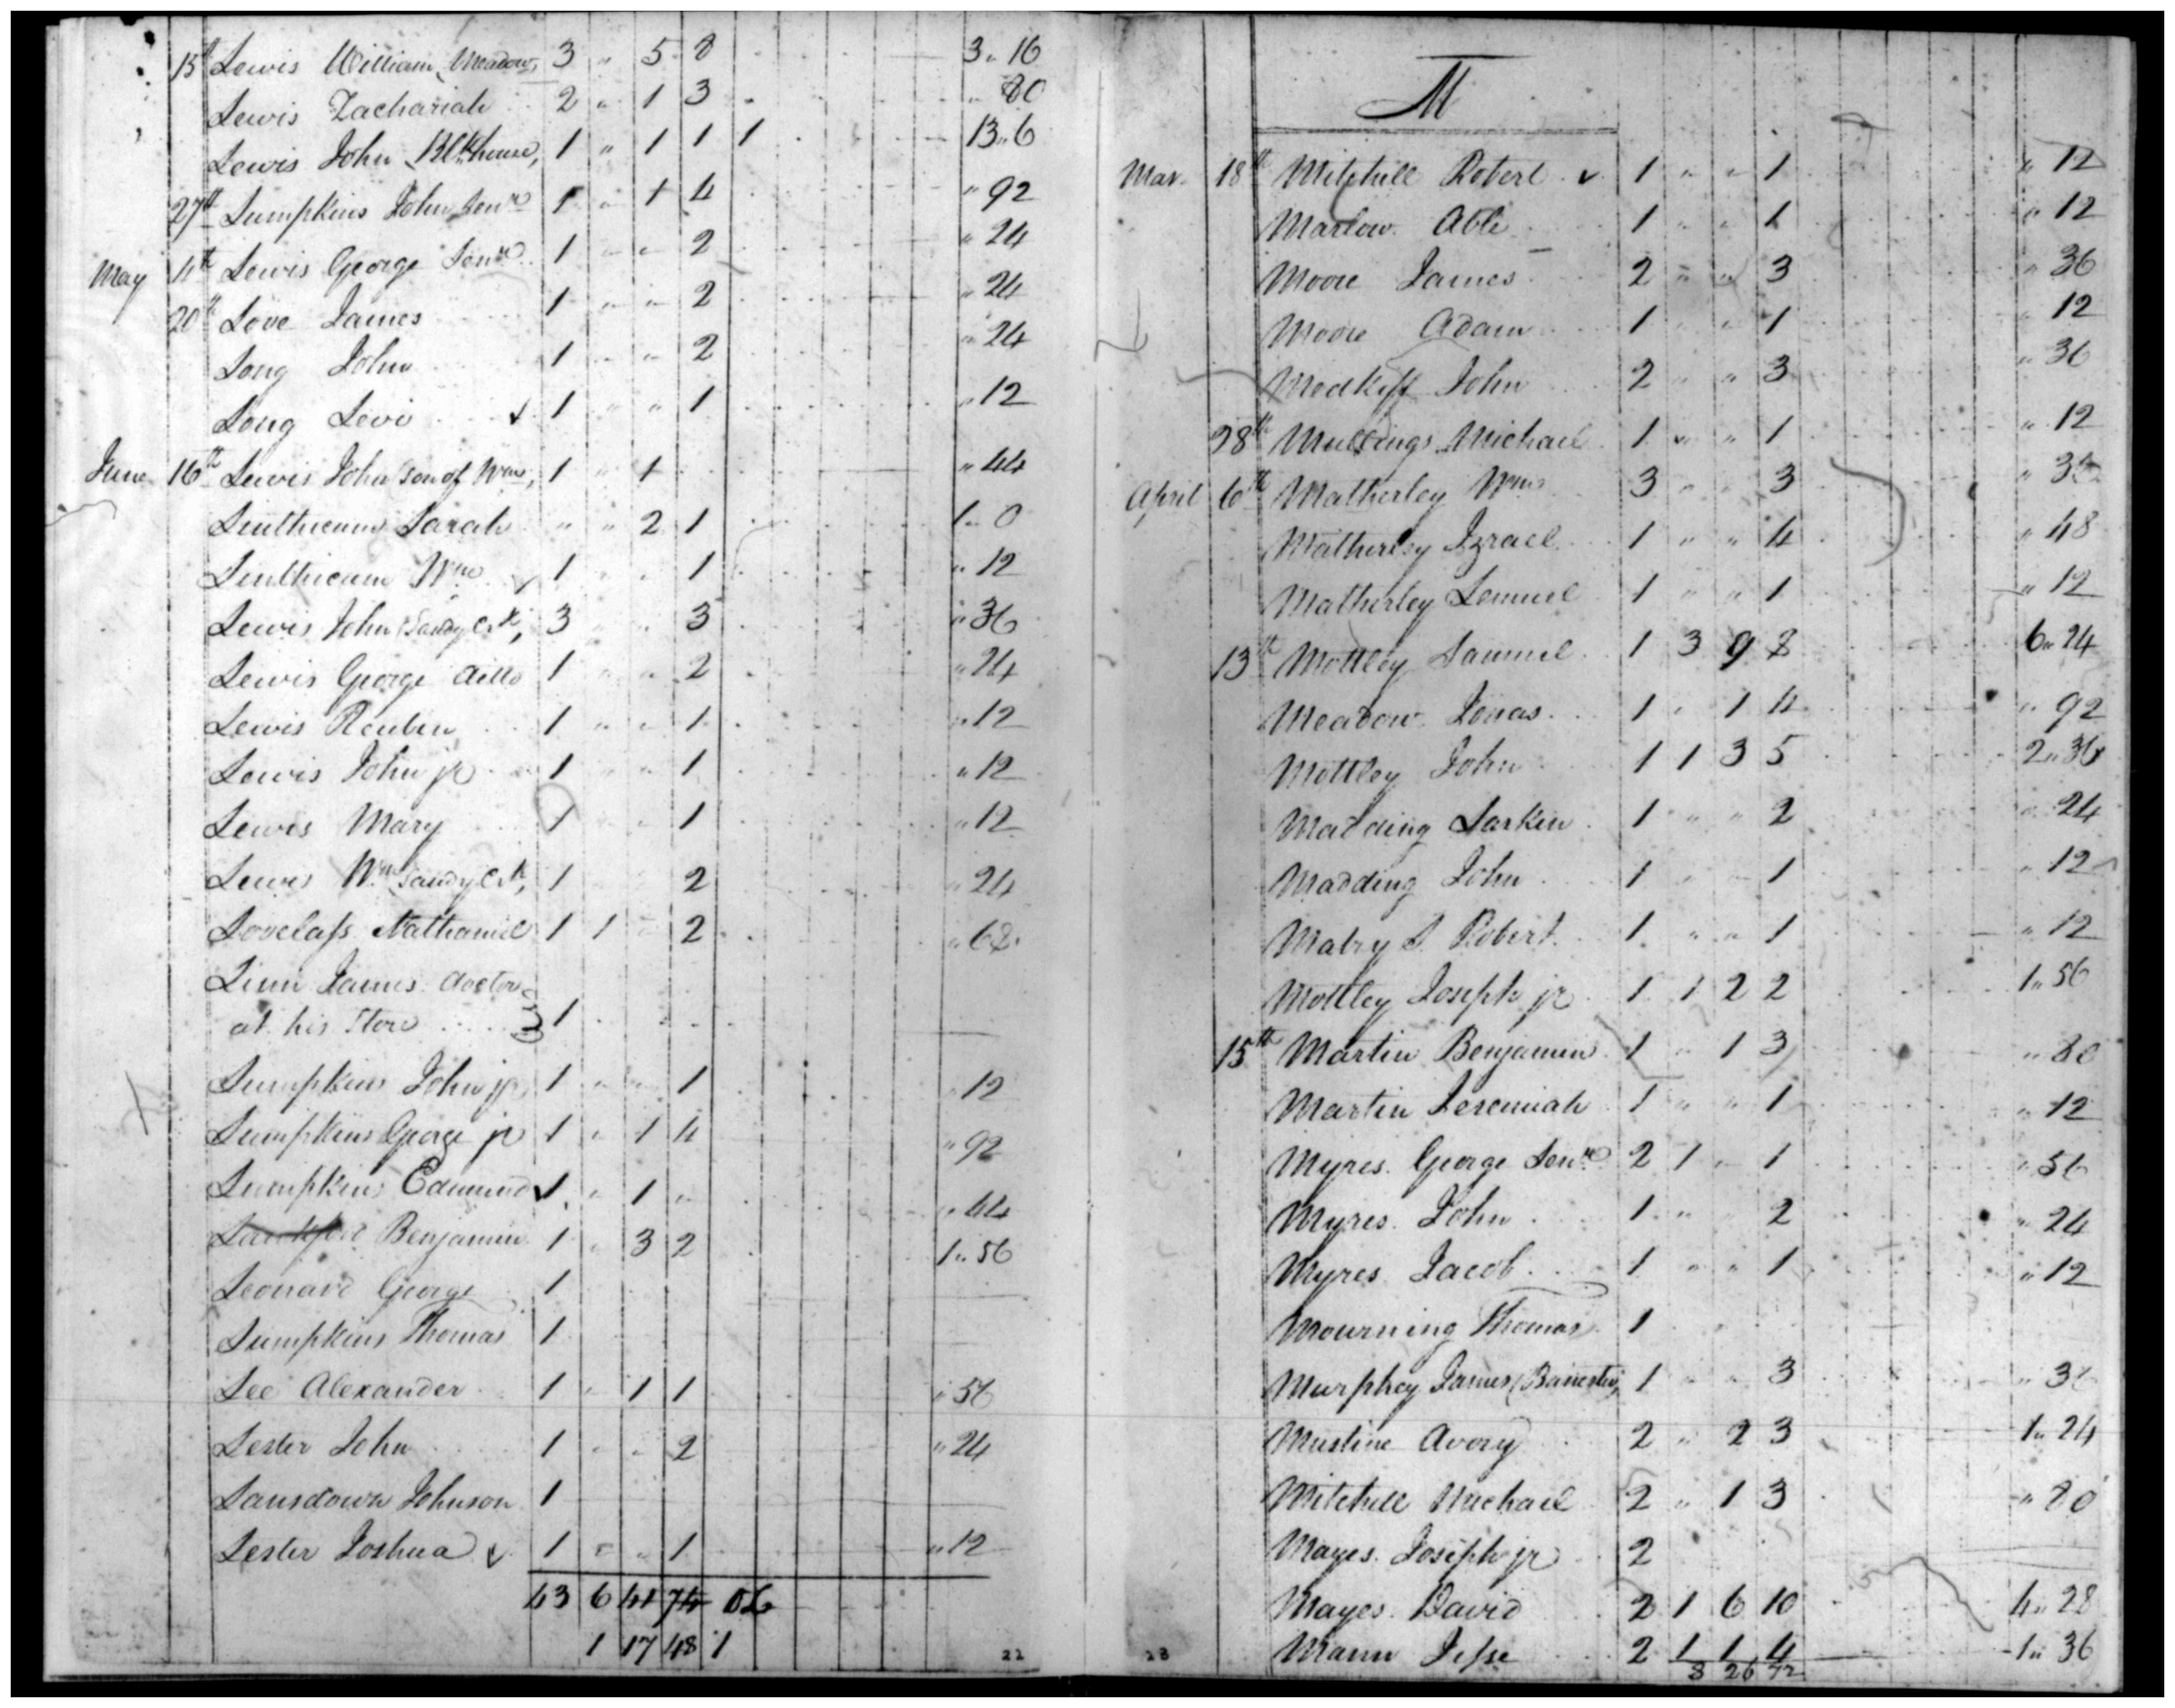 15th Lewis William (Meadow) 3 " 5 8 3 " 16
Lewis Zachariah 2 " 1 3 " 80
Lewis John (Blkhouse) 1 " 1 1 1 13 " 6
27th Lumpkins John Senr 1 " 1 4 " 92
May 4th Lewis George Senr 1 " " 2 " 24
20th Love James 1 " " 2 " 24
Long John 1 " " 2 " 24
Long Levi 1 " " 1 " 12
June 16th Lewis John (son of Wm) 1 " 1 " 44
Linthicum Sarah " " 2 1 1 " 0
Linthicum Wm 1 " " 1 " 12
Lewis John (Sandy Crk) 3 " " 3 " 36
Lewis George ditto 1 " " 2 " 24
Lewis Reuben 1 " " 1 " 12
Lewis John jr 1 " " 1 " 12
Lewis Mary 1 " " 1 " 12
Lewis Wm (Sandy Crk) 1 " " 2 " 24
Lovelass Nathaniel 1 1 " 2 " 68
Linn James doctor
at his Store 1
Lumpkins John jr 1 " " 1 " 12
Lumpkins George jr 1 " 1 4 " 92
Lumpkins Edmund 1 " 1 " " 44
Benjamin 1 " 3 2 1 " 56
Leonard George 1
Lumpkins Thomas 1
Lee Alexander 1 " 1 1 " 56
Lester John 1 " " 2 " 24
Lansdown Johnson 1
Lester Joshua 1 " " 1 " 12
43 6 41 74
1 17 48 1
22
M
Mar. 18th Mitchill Robert 1 " " 1 " 12
Marlow Able 1 " " 1 " 12
Moore James 2 " " 3 " 36
Moore Adam 1 " " 1 " 12
Medkiff John 2 " " 3 " 36
28th Mullings Michael 1 " " 1 " 12
April 6th Matherley Wm 3 " " 3 " 36
Matherley Izrael 1 " " 4 " 48
Matherley Lemuel 1 " " 1 " 12
13th Mottley Samuel 1 3 9 8 6 " 24
Meadow Jonas 1 " 1 4 " 92
Mottley John 1 1 3 5 2 " 36
Madding Larkin 1 " " 2 " 24
Madding John 1 " " 1 " 12
Mabry S. Robert 1 " " 1 " 12
Mottley Joseph jr 1 1 2 2 1 " 56
15th Martin Benjamin 1 " 1 3 " 80
Martin Jeremiah 1 " " 1 " 12
Myres George Senr 2 1 " 1 " 56
Myres John 1 " 2 " 24
Myres Jacob 1 " " 1 " 12
Mourning Thomas 1
Murphey James (Banester) 1 " " 3 " 36
Mustine Avory 2 " 2 3 1 " 24
Mitchill Michael 2 " 1 3 " 80
Mayes Joseph jr 2
Mayes David 2 1 6 10 4 " 28
Mann Jesse 2 1 1 4 1 " 36
8 26 72
23